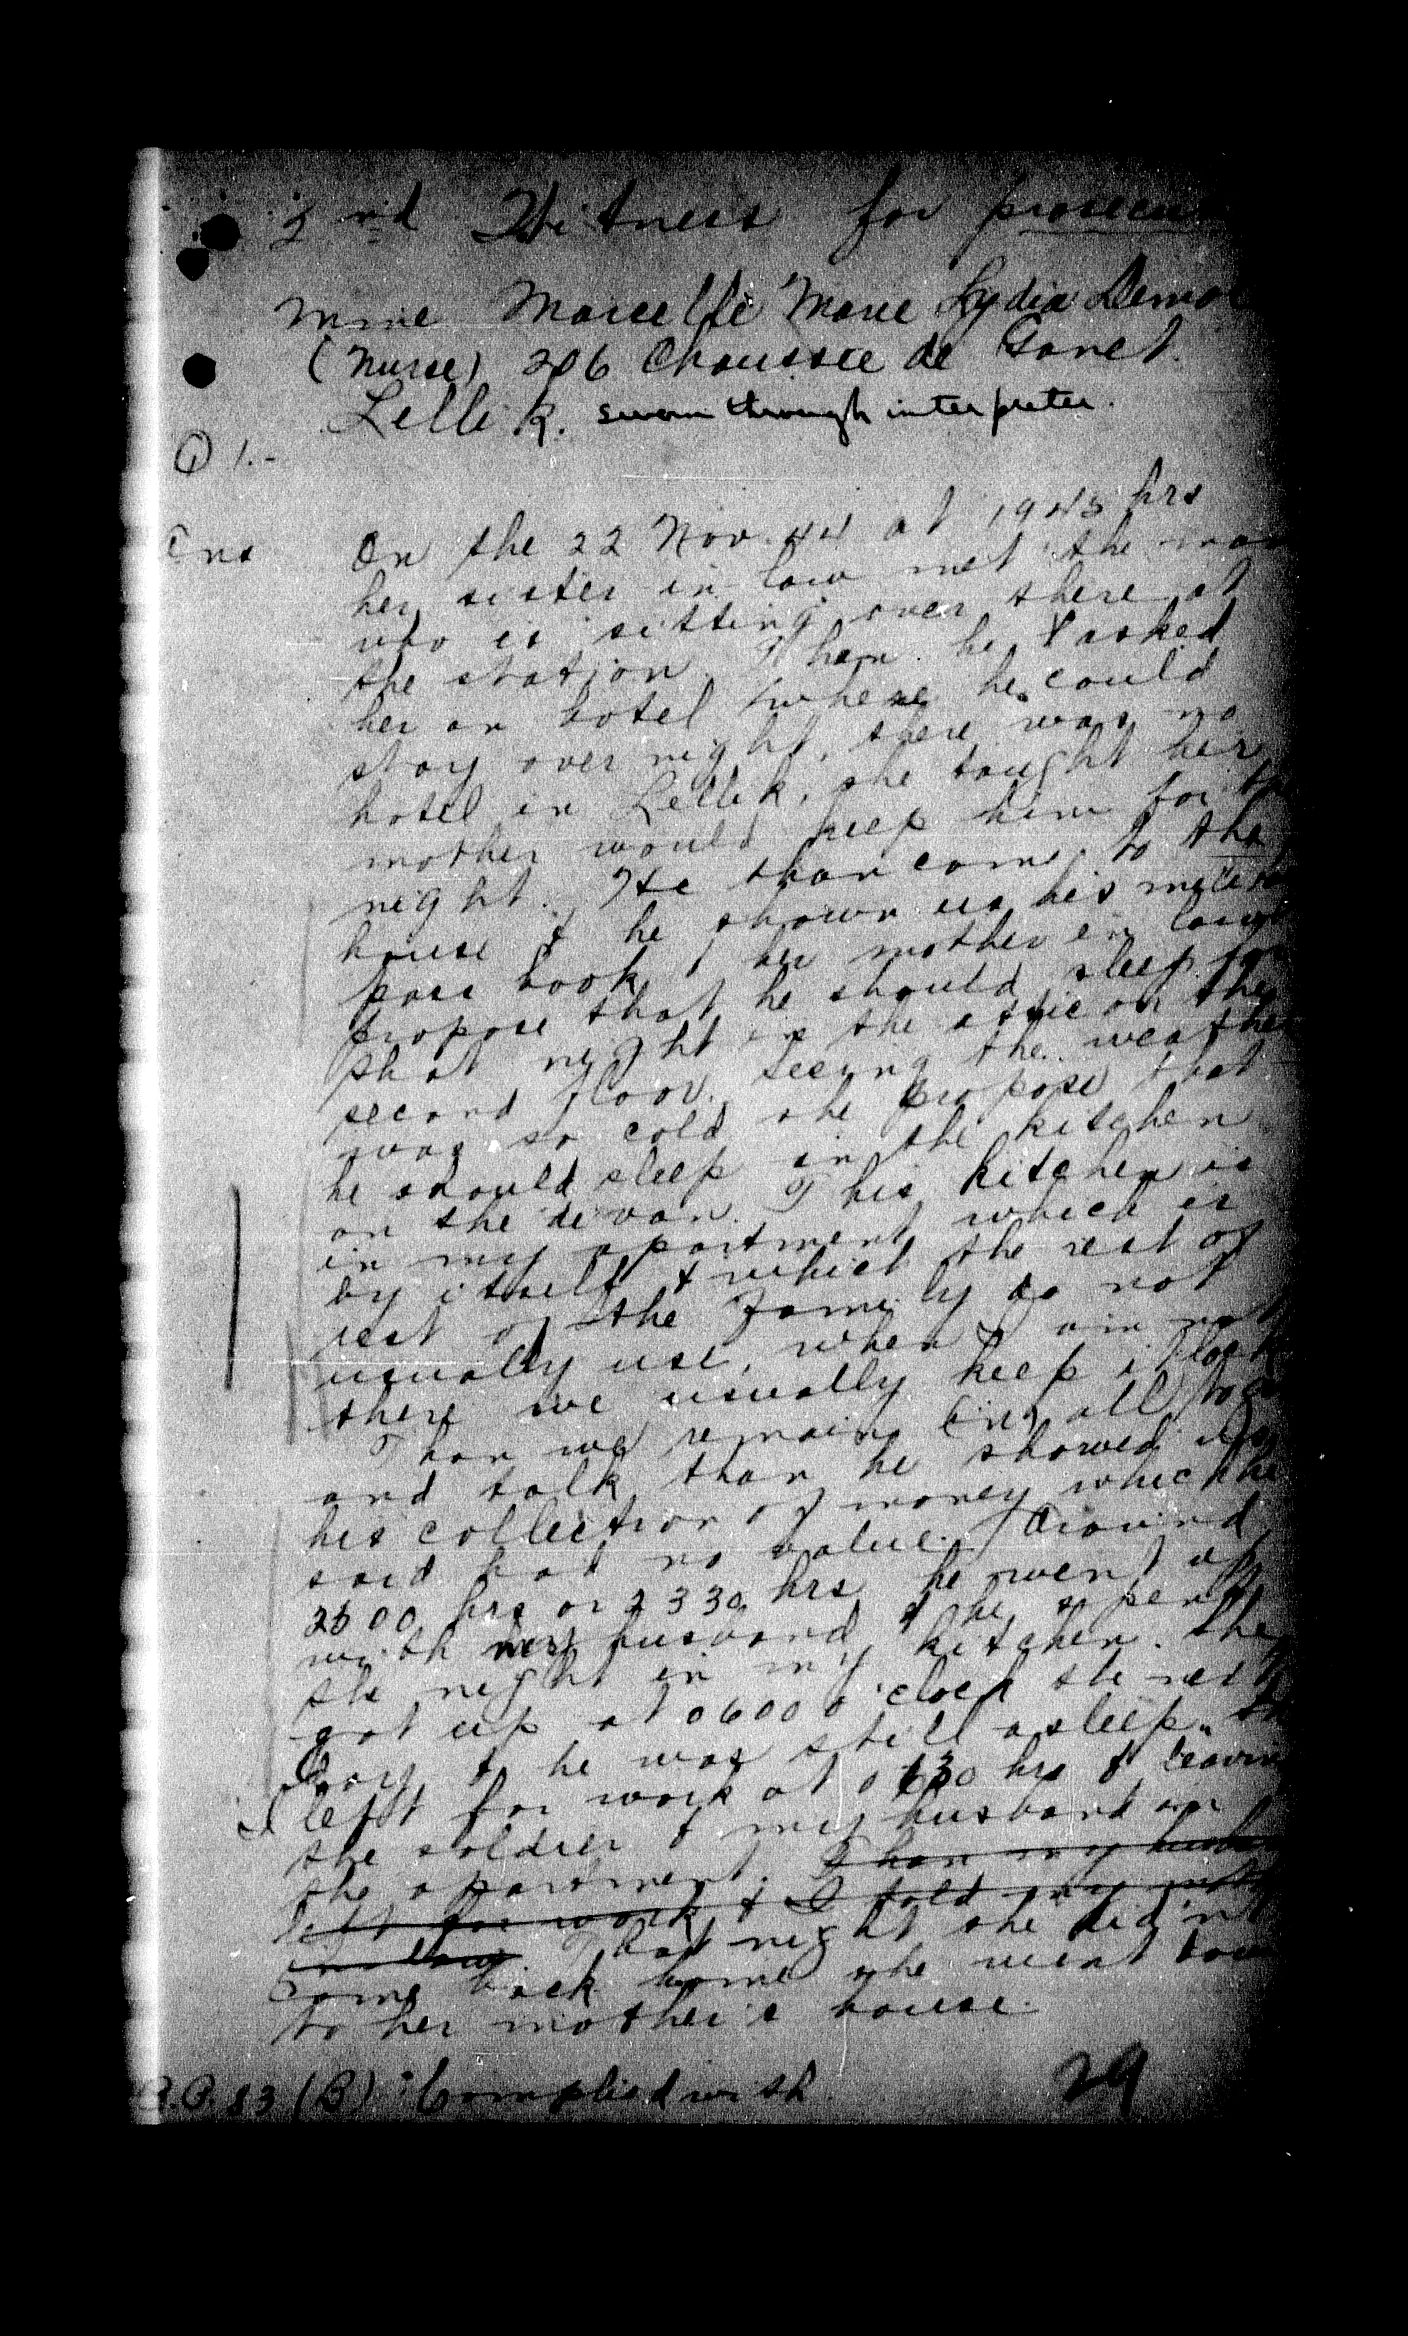 2nd Witness for
Mme Marcelle Marie Lydia
(Nurse) 206 Chaussee de Ganet.
Lellik. sworn through interpreter.
Q 1.-
Ans On the 22 Nov. 44 at 1945 hrs
her sister in law met the man
who is sitting over there at
the station. When he asked
her an hotel where he could
stay over night, there was no
hotel in Lellik, she tought her
mother would keep him for the
night. He than come to the
house & he shown us his
pass book, her mother in law
propose that he should sleep for
that night in the attic on the
second floor. Seeing the weather
was so cold she propose that
he should sleep in the kitchen
on the devan. This kitchen is
in my apartment which is
by itself & which the rest of
rest of the Family do not
usually use, when I am not
there we usually keep it lock
Than we remain all
and talk than he showed us
his collection of money which he
said had no value. Around
2300 hrs or 2330 hrs he went up
with my husband & he spent
the night in my kitchen. She
got up at 0600 o'clock the next
day & he was still asleep.
I left for work at 0630 hrs & leaving
the soldier & my husband in
the apartment. Than my
left for work & I told my
in law That night she did'nt
come back home she went down
to her mother's house.
R.P. 83 (B) Complied with.
29